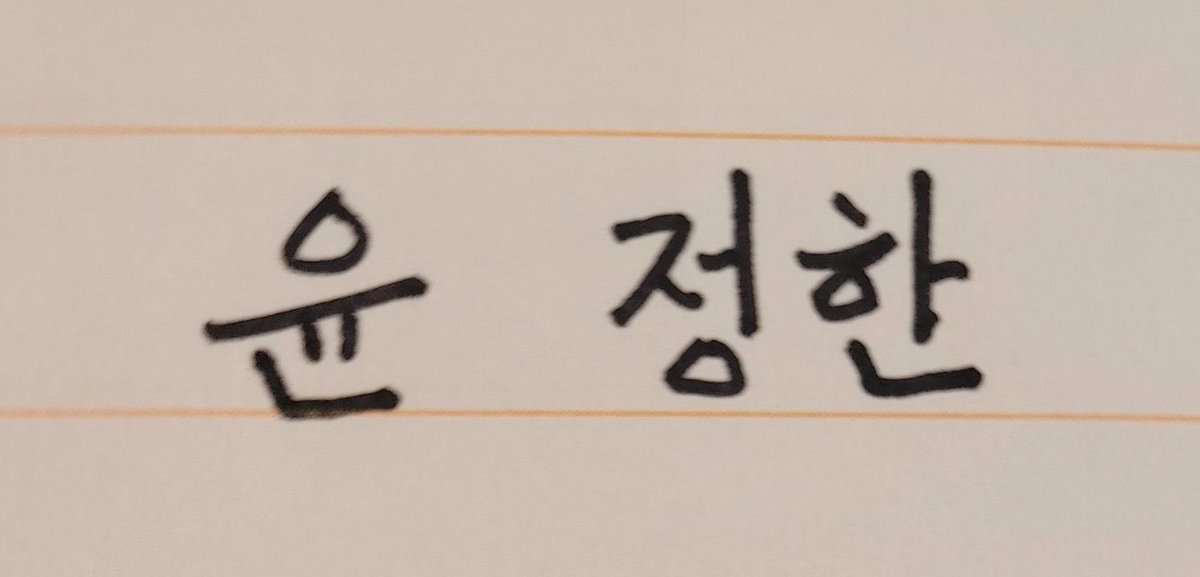 윤 정한